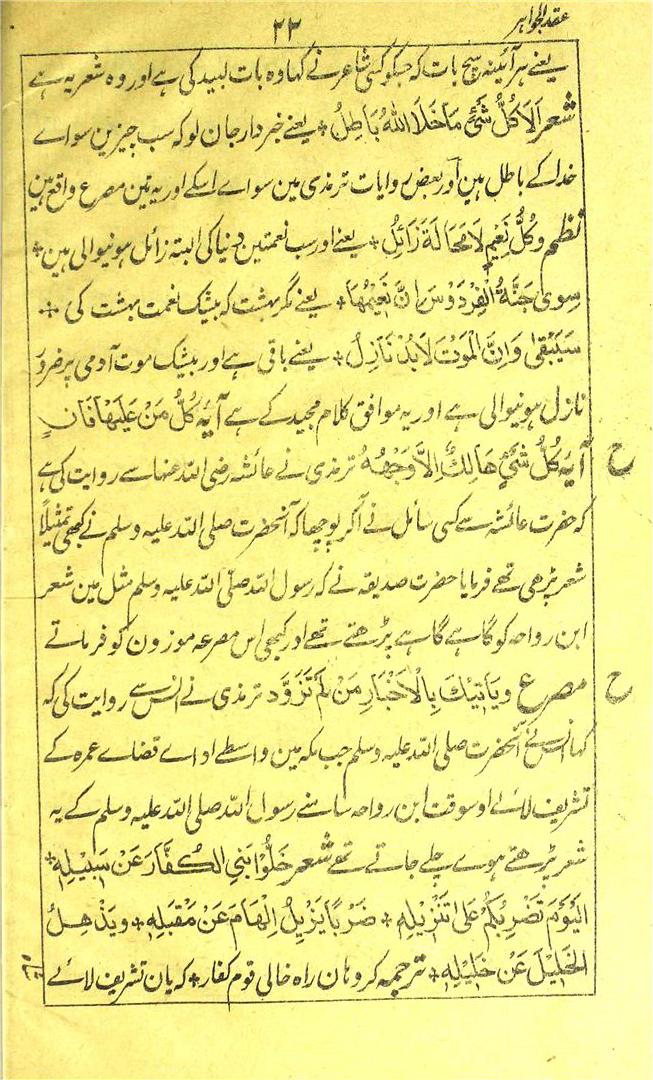 عقد الجواہر
۲۳
یعنے ہر آئینہ سچ بات کہ جسکو کسی شاعر نے کہا وہ بات لبید کی ہے اور وہ شعر یہ ہے
شعر اَلَا كُلُّ شَیْءٍ مَاخَلَا اللّٰهُ بَاطِلُ * یعنے خبردار جان لو کہ سب چیزین سواے
خدا کے باطل ہین اور بعض روایات ترمذی مین سواے اسکے اور یہ تین مصرع واقع ہین
نظم وَكُلُّ نَعِیْمٍ لَا مَحَالَةَ زَائِلُ * یعنے اور سب نعمتین دنیا کی البتہ زائل ہونیوالی ہین *
سِوٰی جَنَّةُ الْفِرْدَوْسِ اِنَّ نَعِیْمُهَا * یعنے مگر بہشت کہ بیشک نعمت بہشت کی *
سَیَبْقٰی وَاِنَّ الْمَوْتَ لَابُدْ نَازِلُ * یعنے باقی ہے اور بیشک موت آدمی پر ضرور
نازل ہونیوالی ہے اور یہ موافق کلام مجید کے ہے آیَہ كُلُّ مَنْ عَلَیْهَا فَانٍ
ح
آیَہ كُلُّ شَیْءٍ هَالِكٌ اِلَّا وَجْهَهُ ترمذی نے عائشہ رضی اللہ عنہا سے روایت کی ہے
کہ حضرت عائشہ سے کسی سائل نے آکر پوچھا کہ آنحضرت صلی اللہ علیہ وسلم نے کبھی تمثیلًا
شعر پڑھی تھے فرمایا حضرت صدیقہ نے کہ رسول اللہ صلّی اللہ علیہ وسلم مثل مین شعر
ابن رواحہ کو گاہے گاہے پڑھتے تھے اور کبھی اس مصرعہ موزون کو فرماتے
ح
مصرع وَیَاتِیْكَ بِالْاَخْبَارِ مَنْ لَمْ تَزَوَّدِ ترمذی نے انس سے روایت کی کہ
کہا انس نے آنحضرت صلی اللہ علیہ وسلم جب مکہ مین واسطے اداے قضاے عمرہ کے
تشریف لائے اوسوقت ابن رواحہ سامنے رسول اللہ صلی اللہ علیہ وسلم کے یہ
شعر پڑھتے ہوے چلے جاتے تھے شعر خَلُّوْا بَنِی الْكُفَّارِ عَنْ سَبِیْلِهِ *
اَلْیَوْمَ نَضْرِبُكُمْ عَلٰی تَنْزِیْلِهِ * ضَرْبًا یَزِیْلُ الْهَامَ عَنْ مَقْبَلِهِ * وَیَذْهِلُ
الْخَلِیْلَ عَنْ خَلِیْلِهِ * ترجمہ کرو ہان راہ خالی قوم کفار * کہ یان تشریف لائے